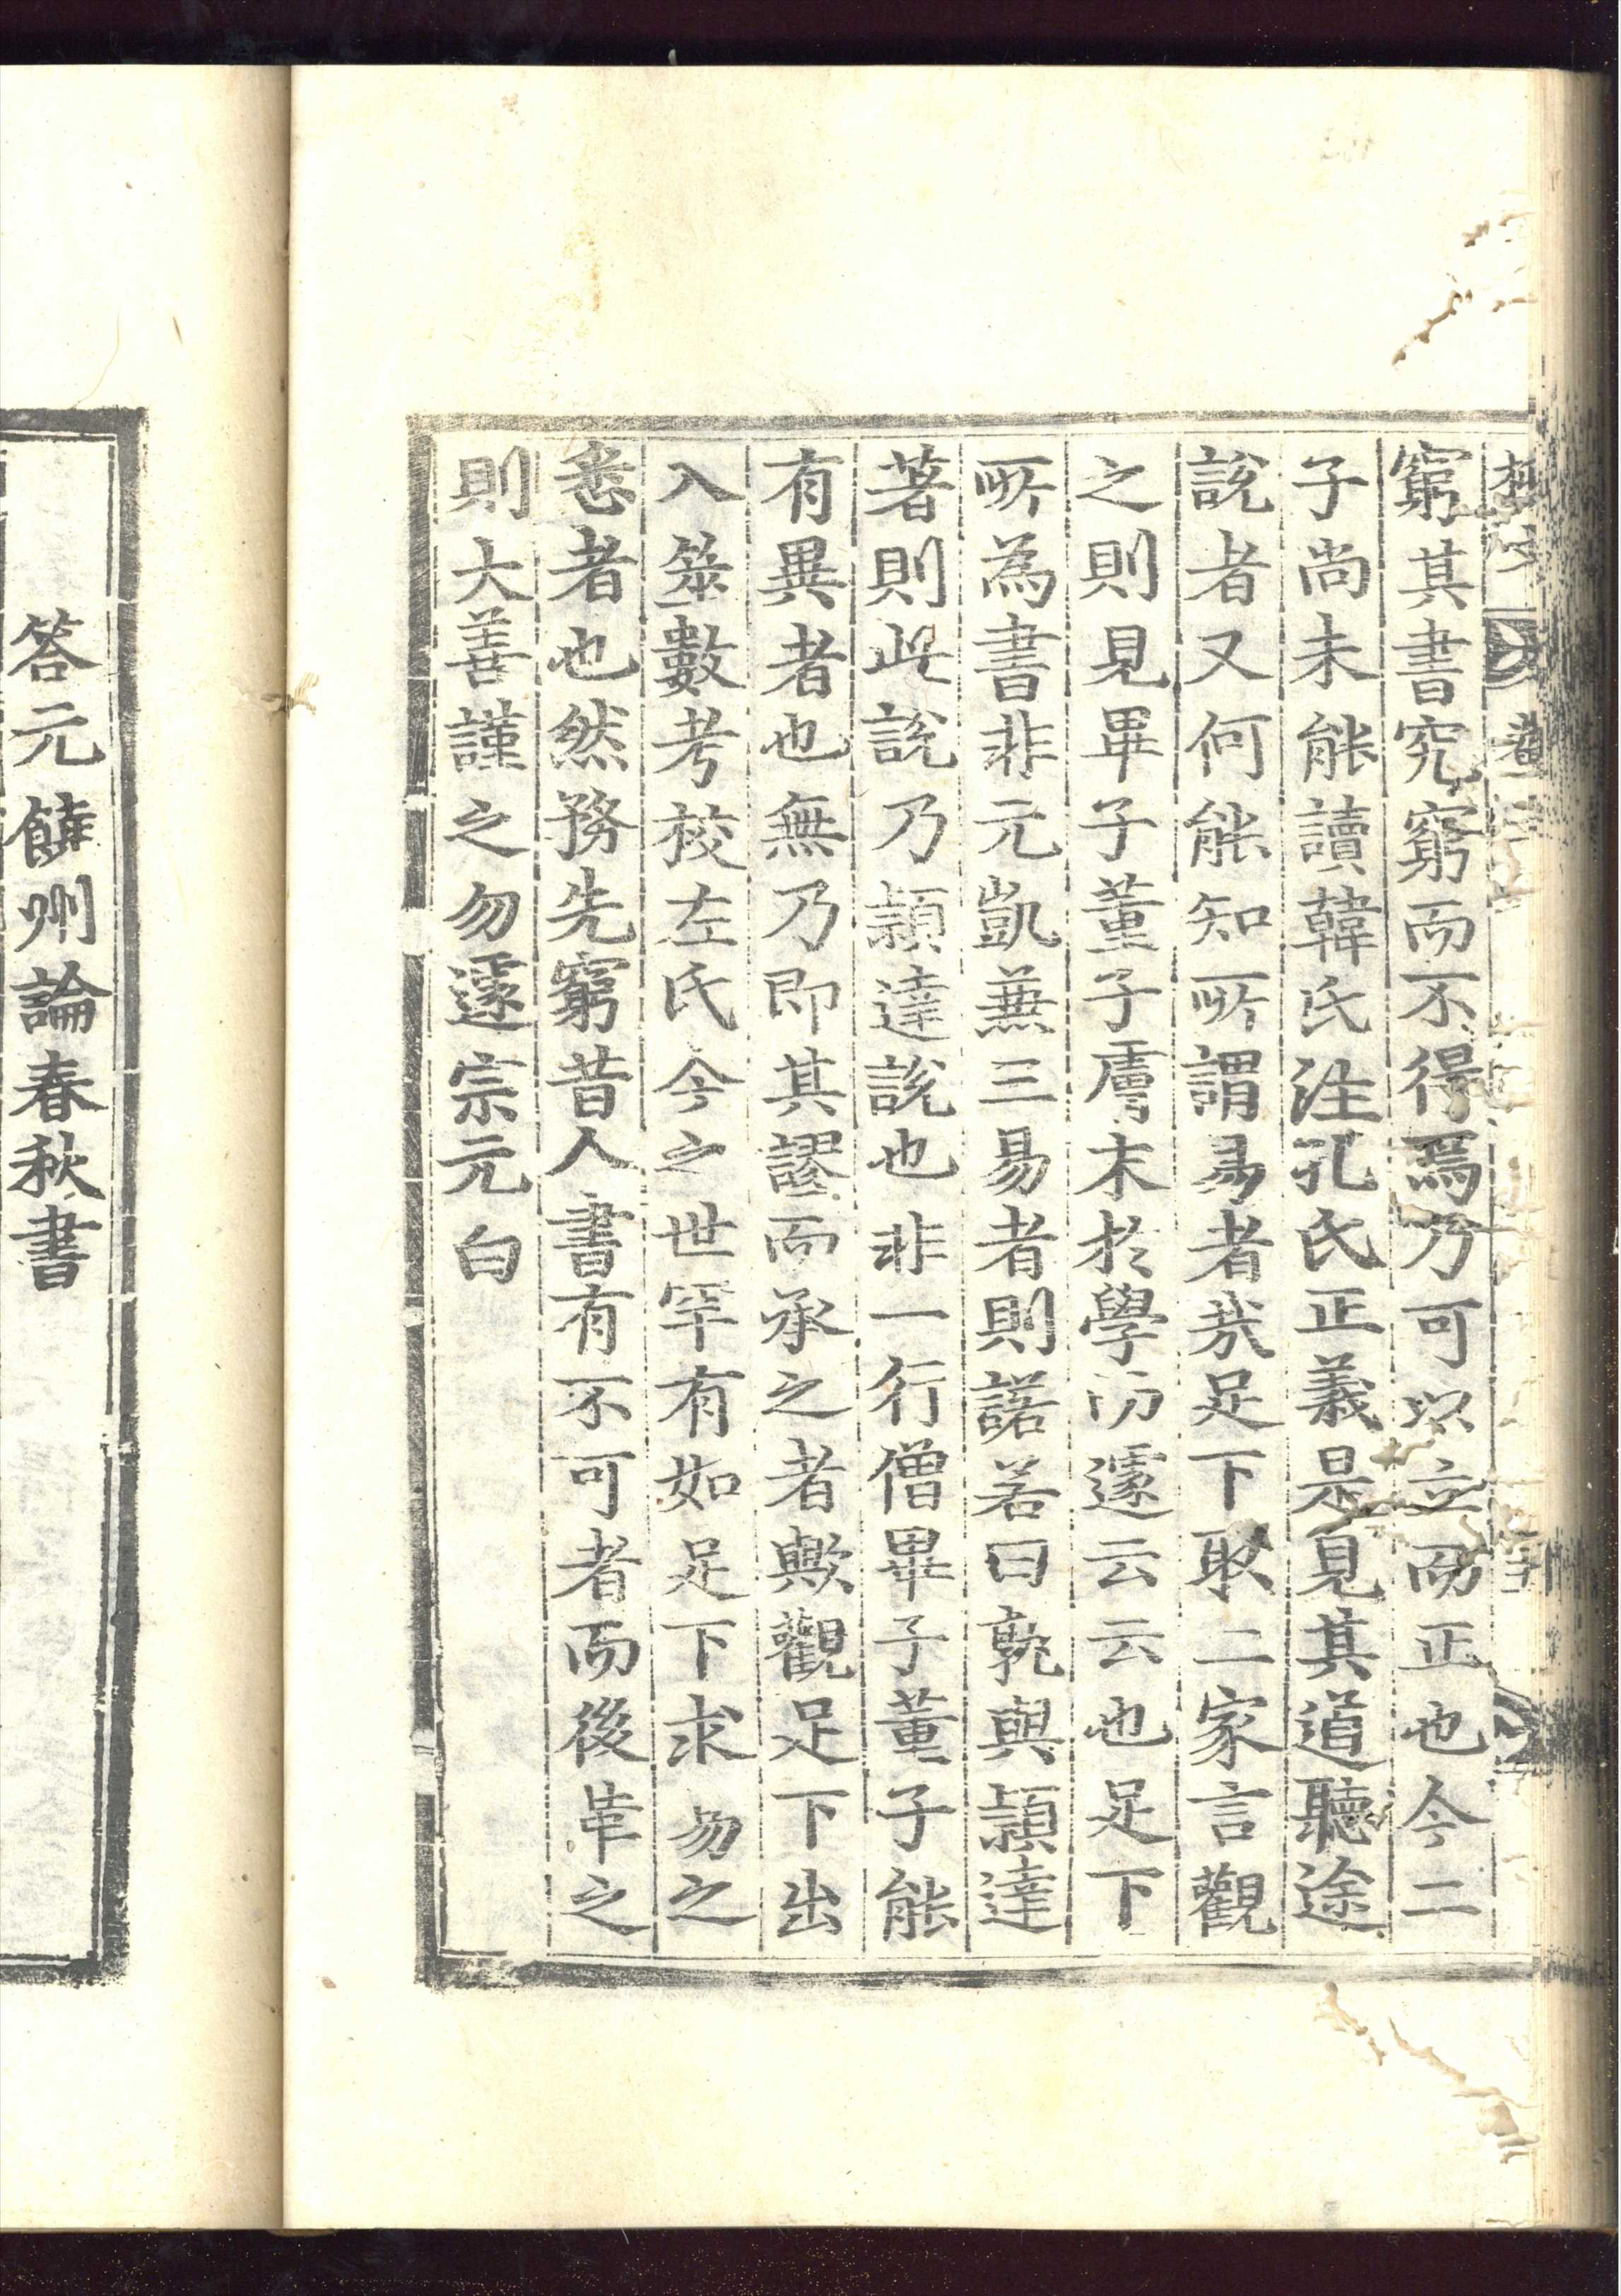 窮其書究窮而不得焉乃可以立而正也今二
子尚未能讀韓氏注孔氏正義是見其道聽途
說者又何能知所謂易者哉足下取二家言觀
之則見畢子董子膚末於學而遽云云也足下
所為書非元凱兼三易者則諾若曰孰與穎達
著則此說乃穎達說也非一行僧畢子董子能
有異者也無乃即其謬而承之者歟觀足下出
入筮數考校左氏今之世罕有如足下求易之
悉者也然務先窮昔人書有不可者而後革之
則大善謹之勿遽宗元白
答元饒州論春秋書